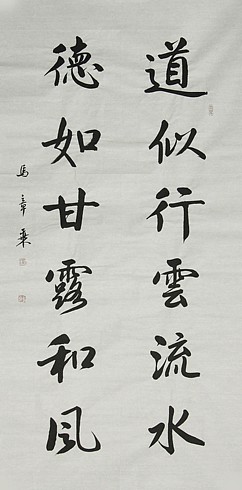 道似行雲流水
德如甘露和风
馬章乘